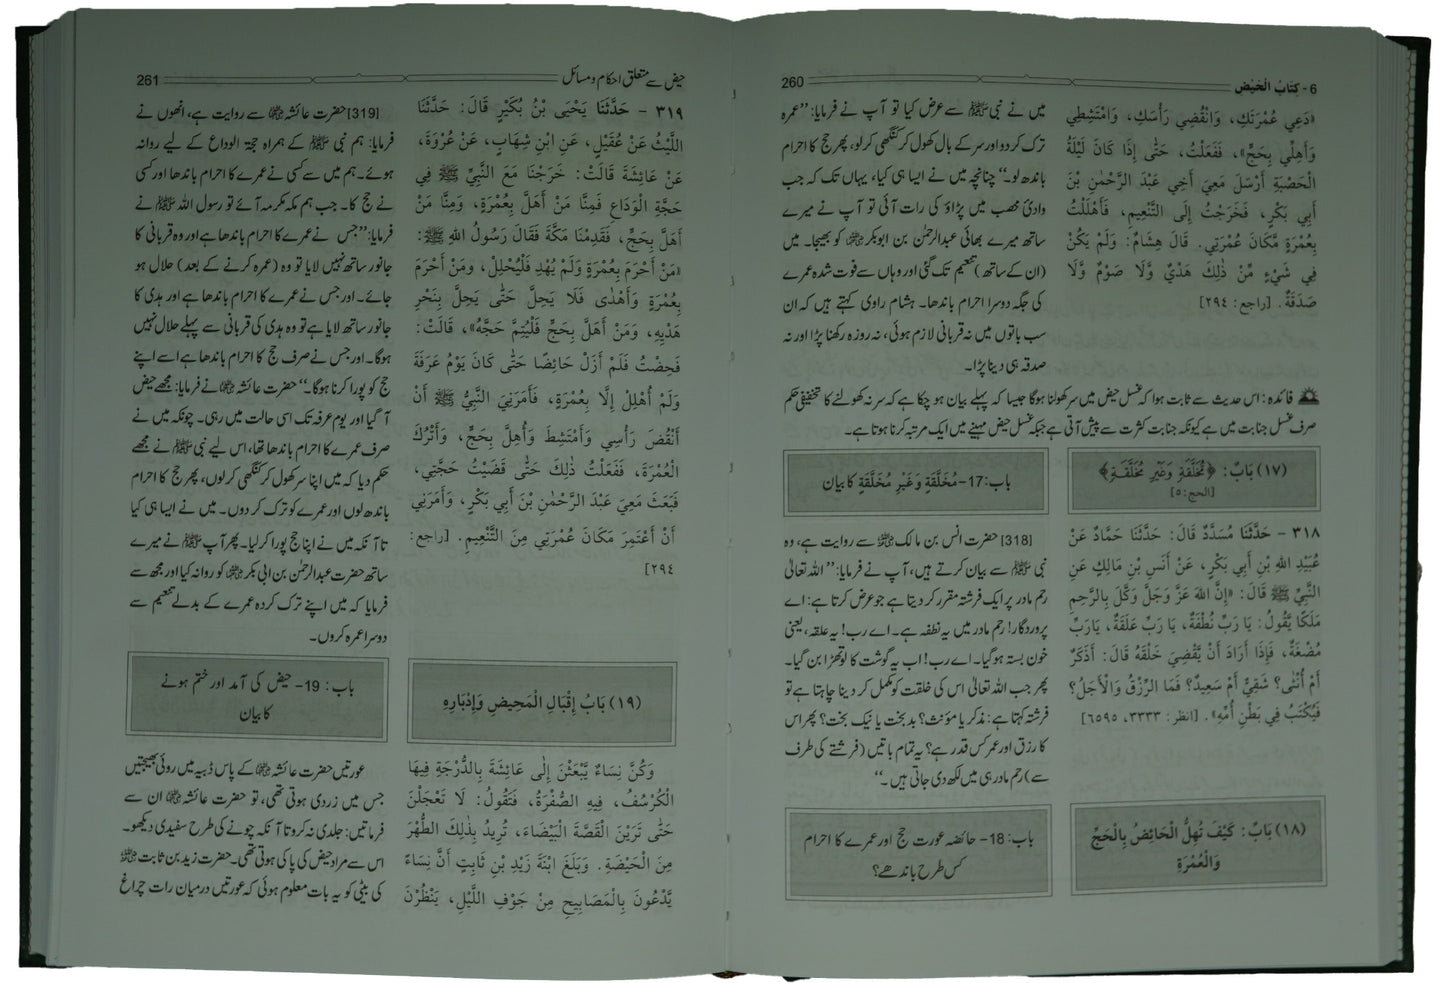 6 - كِتَابُ الْحَيْض
260
«دَعِي عُمْرَتَكِ، وَانْقُضِي رَأْسَكِ، وَامْتَشِطِي
وَأَهِلِّي بِحَجٍّ»، فَفَعَلْتُ، حَتَّى إِذَا كَانَ لَيْلَةُ
الْحَصْبَةِ أَرْسَلَ مَعِيَ أَخِي عَبْدَ الرَّحْمٰنِ بْنَ
أَبِي بَكْرٍ، فَخَرَجْتُ إِلَى التَّنْعِيمِ، فَأَهْلَلْتُ
بِعُمْرَةٍ مَّكَانَ عُمْرَتِي. قَالَ هِشَامٌ: وَلَمْ يَكُنْ
فِي شَيْءٍ مِّنْ ذٰلِكَ هَدْيٌ وَّلَا صَوْمٌ وَّلَا
صَدَقَةٌ. [راجع: ٢٩٤]
میں نے نبی ﷺ سے عرض کیا تو آپ نے فرمایا: ’’عمرہ
ترک کر دو اور سر کے بال کھول کر کنگھی کر لو، پھر حج کا احرام
باندھ لو۔‘‘ چنانچہ میں نے ایسا ہی کیا، یہاں تک کہ جب
وادیٔ محصب میں پڑاؤ کی رات آئی تو آپ نے میرے
ساتھ میرے بھائی عبدالرحمٰن بن ابوبکر ؓ کو بھیجا۔ میں
(ان کے ساتھ) تنعیم تک گئی اور وہاں سے فوت شدہ عمرے
کی جگہ دوسرا احرام باندھا۔ ہشام راوی کہتے ہیں کہ ان
سب باتوں میں نہ قربانی لازم ہوئی، نہ روزہ رکھنا پڑا اور نہ
صدقہ ہی دینا پڑا۔
فائدہ: اس حدیث سے ثابت ہوا کہ غسل حیض میں سر کھولنا ہوگا جیسا کہ پہلے بیان ہو چکا ہے کہ سر نہ کھولنے کا تخفیفی حکم
صرف غسل جنابت میں ہے کیونکہ جنابت کثرت سے پیش آتی ہے جبکہ غسل حیض مہینے میں ایک مرتبہ کرنا ہوتا ہے۔
(١٧) بَابٌ: ﴿مُخَلَّقَةٍ وَغَيْرِ مُخَلَّقَةٍ﴾
[الحج: ٥]
باب: 17- مُخَلَّقَةٍ وَغَيْرِ مُخَلَّقَةٍ کا بیان
٣١٨ - حَدَّثَنَا مُسَدَّدٌ قَالَ: حَدَّثَنَا حَمَّادٌ عَنْ
عُبَيْدِ اللهِ بْنِ أَبِي بَكْرٍ، عَنْ أَنَسِ بْنِ مَالِكٍ عَنِ
النَّبِيِّ ﷺ قَالَ: «إِنَّ اللهَ عَزَّ وَجَلَّ وَكَّلَ بِالرَّحِمِ
مَلَكًا يَّقُولُ: يَا رَبِّ نُطْفَةٌ، يَا رَبِّ عَلَقَةٌ، يَارَبِّ
مُضْغَةٌ، فَإِذَا أَرَادَ أَنْ يَّقْضِيَ خَلْقَهُ قَالَ: أَذَكَرٌ
أَمْ أُنْثٰى؟ شَقِيٌّ أَمْ سَعِيدٌ؟ فَمَا الرِّزْقُ وَالْأَجَلُ؟
فَيُكْتَبُ فِي بَطْنِ أُمِّهِ». [انظر: ٣٣٣٣، ٦٥٩٥]
[318] حضرت انس بن مالک ؓ سے روایت ہے، وہ
نبی ﷺ سے بیان کرتے ہیں، آپ نے فرمایا: ’’اللہ تعالیٰ
رحم مادر پر ایک فرشتہ مقرر کر دیتا ہے جو عرض کرتا ہے: اے
پروردگار! رحم مادر میں یہ نطفہ ہے۔ اے رب! یہ علقہ، یعنی
خون بستہ ہوگیا۔ اے رب! اب یہ گوشت کا لوتھڑا بن گیا۔
پھر جب اللہ تعالیٰ اس کی خلقت کو مکمل کر دینا چاہتا ہے تو
فرشتہ کہتا ہے: مذکر یا مؤنث؟ بدبخت یا نیک بخت؟ پھر اس
کا رزق اور عمر کس قدر ہے؟ یہ تمام باتیں (فرشتے کی طرف
سے) رحم مادر ہی میں لکھ دی جاتی ہیں۔‘‘
(١٨) بَابٌ: كَيْفَ تُهِلُّ الْحَائِضُ بِالْحَجِّ
وَالْعُمْرَةِ
باب: 18- حائضہ عورت حج اور عمرے کا احرام
کس طرح باندھے؟
حیض سے متعلق احکام و مسائل
261
٣١٩ - حَدَّثَنَا يَحْيَى بْنُ بُكَيْرٍ قَالَ: حَدَّثَنَا
اللَّيْثُ عَنْ عُقَيْلٍ، عَنِ ابْنِ شِهَابٍ، عَنْ عُرْوَةَ،
عَنْ عَائِشَةَ قَالَتْ: خَرَجْنَا مَعَ النَّبِيِّ ﷺ فِي
حَجَّةِ الْوَدَاعِ فَمِنَّا مَنْ أَهَلَّ بِعُمْرَةٍ، وَمِنَّا مَنْ
أَهَلَّ بِحَجٍّ، فَقَدِمْنَا مَكَّةَ فَقَالَ رَسُولُ اللهِ ﷺ:
«مَنْ أَحْرَمَ بِعُمْرَةٍ وَلَمْ يُهْدِ فَلْيُحْلِلْ، وَمَنْ أَحْرَمَ
بِعُمْرَةٍ وَأَهْدٰى فَلَا يَحِلُّ حَتَّى يَحِلَّ بِنَحْرِ
هَدْيِهِ، وَمَنْ أَهَلَّ بِحَجٍّ فَلْيُتِمَّ حَجَّهُ»، قَالَتْ:
فَحِضْتُ فَلَمْ أَزَلْ حَائِضًا حَتَّى كَانَ يَوْمُ عَرَفَةَ
وَلَمْ أُهْلِلْ إِلَّا بِعُمْرَةٍ، فَأَمَرَنِي النَّبِيُّ ﷺ أَنْ
أَنْقُضَ رَأْسِي وَأَمْتَشِطَ وَأُهِلَّ بِحَجٍّ، وَأَتْرُكَ
الْعُمْرَةَ، فَفَعَلْتُ ذٰلِكَ حَتَّى قَضَيْتُ حَجَّتِي،
فَبَعَثَ مَعِيَ عَبْدَ الرَّحْمٰنِ بْنَ أَبِي بَكْرٍ، وَأَمَرَنِي
أَنْ أَعْتَمِرَ مَكَانَ عُمْرَتِي مِنَ التَّنْعِيمِ. [راجع:
٢٩٤]
[319] حضرت عائشہ ؓ سے روایت ہے، انھوں نے
فرمایا: ہم نبی ﷺ کے ہمراہ حجۃ الوداع کے لیے روانہ
ہوئے۔ ہم میں سے کسی نے عمرے کا احرام باندھا اور کسی
نے حج کا۔ جب ہم مکہ مکرمہ آئے تو رسول اللہ ﷺ نے
فرمایا: ’’جس نے عمرے کا احرام باندھا ہے اور وہ قربانی کا
جانور ساتھ نہیں لایا تو وہ (عمرہ کرنے کے بعد) حلال ہو
جائے۔ اور جس نے عمرے کا احرام باندھا ہے اور ہدی کا
جانور ساتھ لایا ہے تو وہ ہدی کی قربانی سے پہلے حلال نہیں
ہوگا۔ اور جس نے صرف حج کا احرام باندھا ہے اسے اپنے
حج کو پورا کرنا ہوگا۔‘‘ حضرت عائشہ ؓ نے فرمایا: مجھے حیض
آ گیا اور یوم عرفہ تک اسی حالت میں رہی۔ چونکہ میں نے
صرف عمرے کا احرام باندھا تھا، اس لیے نبی ﷺ نے مجھے
حکم دیا کہ میں اپنا سر کھول کر کنگھی کر لوں، پھر حج کا احرام
باندھ لوں اور عمرے کو ترک کر دوں۔ میں نے ایسا ہی کیا
تا آنکہ میں نے اپنا حج پورا کر لیا۔ پھر آپ ﷺ نے میرے
ساتھ حضرت عبدالرحمٰن بن ابی بکر ؓ کو روانہ کیا اور مجھ سے
فرمایا کہ میں اپنے ترک کردہ عمرے کے بدلے تنعیم سے
دوسرا عمرہ کروں۔
(١٩) بَابُ إِقْبَالِ الْمَحِيضِ وَإِدْبَارِهِ
باب: 19- حیض کی آمد اور ختم ہونے
کا بیان
وَكُنَّ نِسَاءٌ يَّبْعَثْنَ إِلٰى عَائِشَةَ بِالدُّرْجَةِ فِيهَا
الْكُرْسُفُ، فِيهِ الصُّفْرَةُ، فَتَقُولُ: لَا تَعْجَلْنَ
حَتَّى تَرَيْنَ الْقَصَّةَ الْبَيْضَاءَ، تُرِيدُ بِذٰلِكَ الطُّهْرَ
مِنَ الْحَيْضَةِ. وَبَلَغَ ابْنَةَ زَيْدِ بْنِ ثَابِتٍ أَنَّ نِسَاءً
يَّدْعُونَ بِالْمَصَابِيحِ مِنْ جَوْفِ اللَّيْلِ، يَنْظُرْنَ
عورتیں حضرت عائشہ ؓ کے پاس ڈبیہ میں روئی بھیجتیں
جس میں زردی ہوتی تھی، تو حضرت عائشہ ؓ ان سے
فرماتیں: جلدی نہ کرو تا آنکہ چونے کی طرح سفیدی دیکھو۔
اس سے مراد حیض کی پاکی ہوتی تھی۔ حضرت زید بن ثابت ؓ
کی بیٹی کو یہ بات معلوم ہوئی کہ عورتیں درمیان رات چراغ